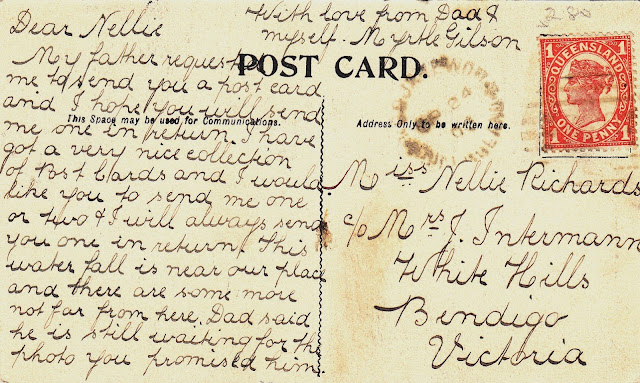 With love from Dad &
myself. Myrtle Gilson
Dear Nellie
My father requested
me to send you a post card
and I hope you will send
me one in return. I have
got a very nice collection
of Post Cards and I would
like you to send me one
or two & I will always send
you one in return. This
water fall is near our place
and there are some more
not far from here. Dad said
he is still waiting for the
photo you promised him.
POST CARD.
This Space may be used for Communications.
Address Only to be written here.
QUEENSLAND
1 1
ONE PENNY
1 1
24
Miss Nellie Richards
c/o Mrs J. Intermann
White Hills
Bendigo
Victoria